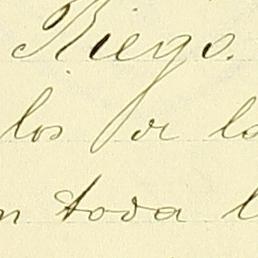 Riego.
los de l
n toda l